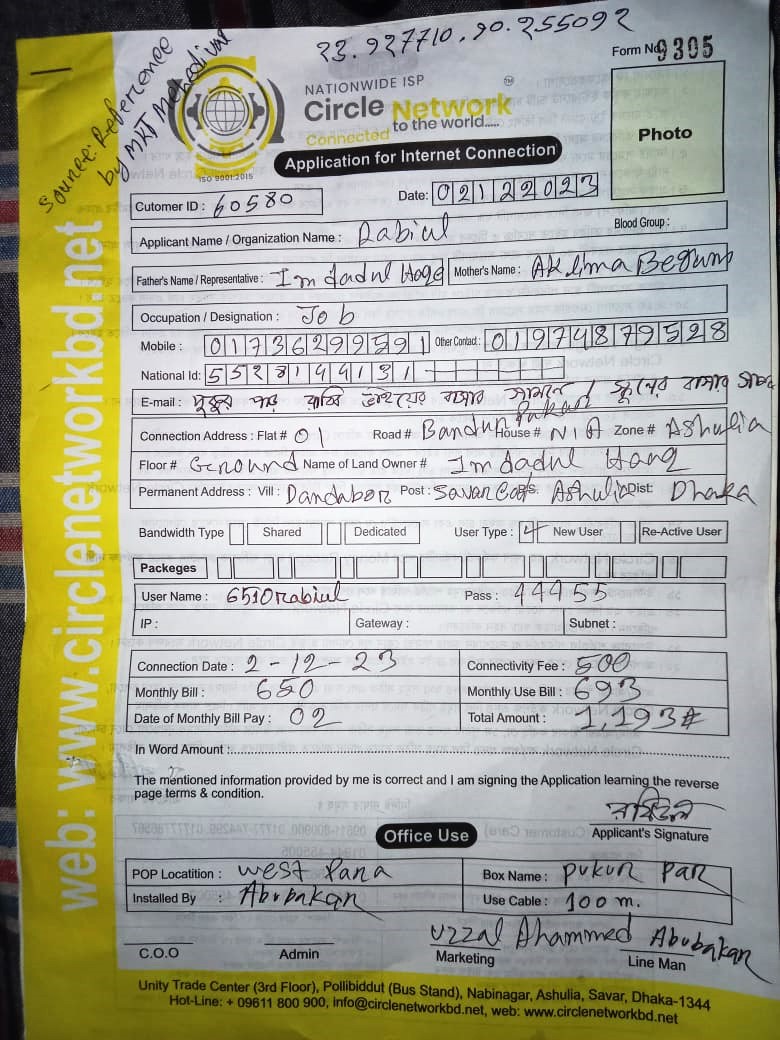 23.927710, 90.255092
Source: Reference
by MKT Mehedi
NATIONWIDE ISP
Circle Network
TM
Connected to the world.....
ISO 9001:2015
Form No 9305
Photo
Application for Internet Connection
Cutomer ID : 60580
Date: 02122023
Applicant Name / Organization Name : Rabiul
Blood Group :
Father's Name / Representative : Imdadul Hoqe
Mother's Name : Aklima Begum
Occupation / Designation : Job
Mobile : 01736299591
Other Contact : 01974879528
National Id: 5528144131
E-mail : পুকুর পাড় ভাইয়ের বাসার সামনে / স্কুলের বাসার
Connection Address : Flat # 01 Road # House # N/A Zone # Ashulia
Floor # Ground Name of Land Owner # Imdadul Haoq
Permanent Address : Vill : Dandabor Post : Savar P.S. Ashulia Dist: Dhaka
Bandwidth Type Shared Dedicated User Type : New User Re-Active User
Packeges
User Name : 6510rabiul Pass : 44455
IP : Gateway : Subnet :
Connection Date : 2-12-23 Connectivity Fee : 500
Monthly Bill : 650 Monthly Use Bill : 693
Date of Monthly Bill Pay : 02 Total Amount : 1,193
In Word Amount :
The mentioned information provided by me is correct and I am signing the Application learning the reverse
page terms & condition.
রাবিউল
Applicant's Signature
Office Use
POP Locatition : West Para Box Name : Pukur Par
Installed By : Abubakar Use Cable : 100 m.
Uzzal Ahammed Abubakar
C.O.O Admin Marketing Line Man
Unity Trade Center (3rd Floor), Pollibiddut (Bus Stand), Nabinagar, Ashulia, Savar, Dhaka-1344
Hot-Line: + 09611 800 900, info@circlenetworkbd.net, web: www.circlenetworkbd.net
web: www.circlenetworkbd.net